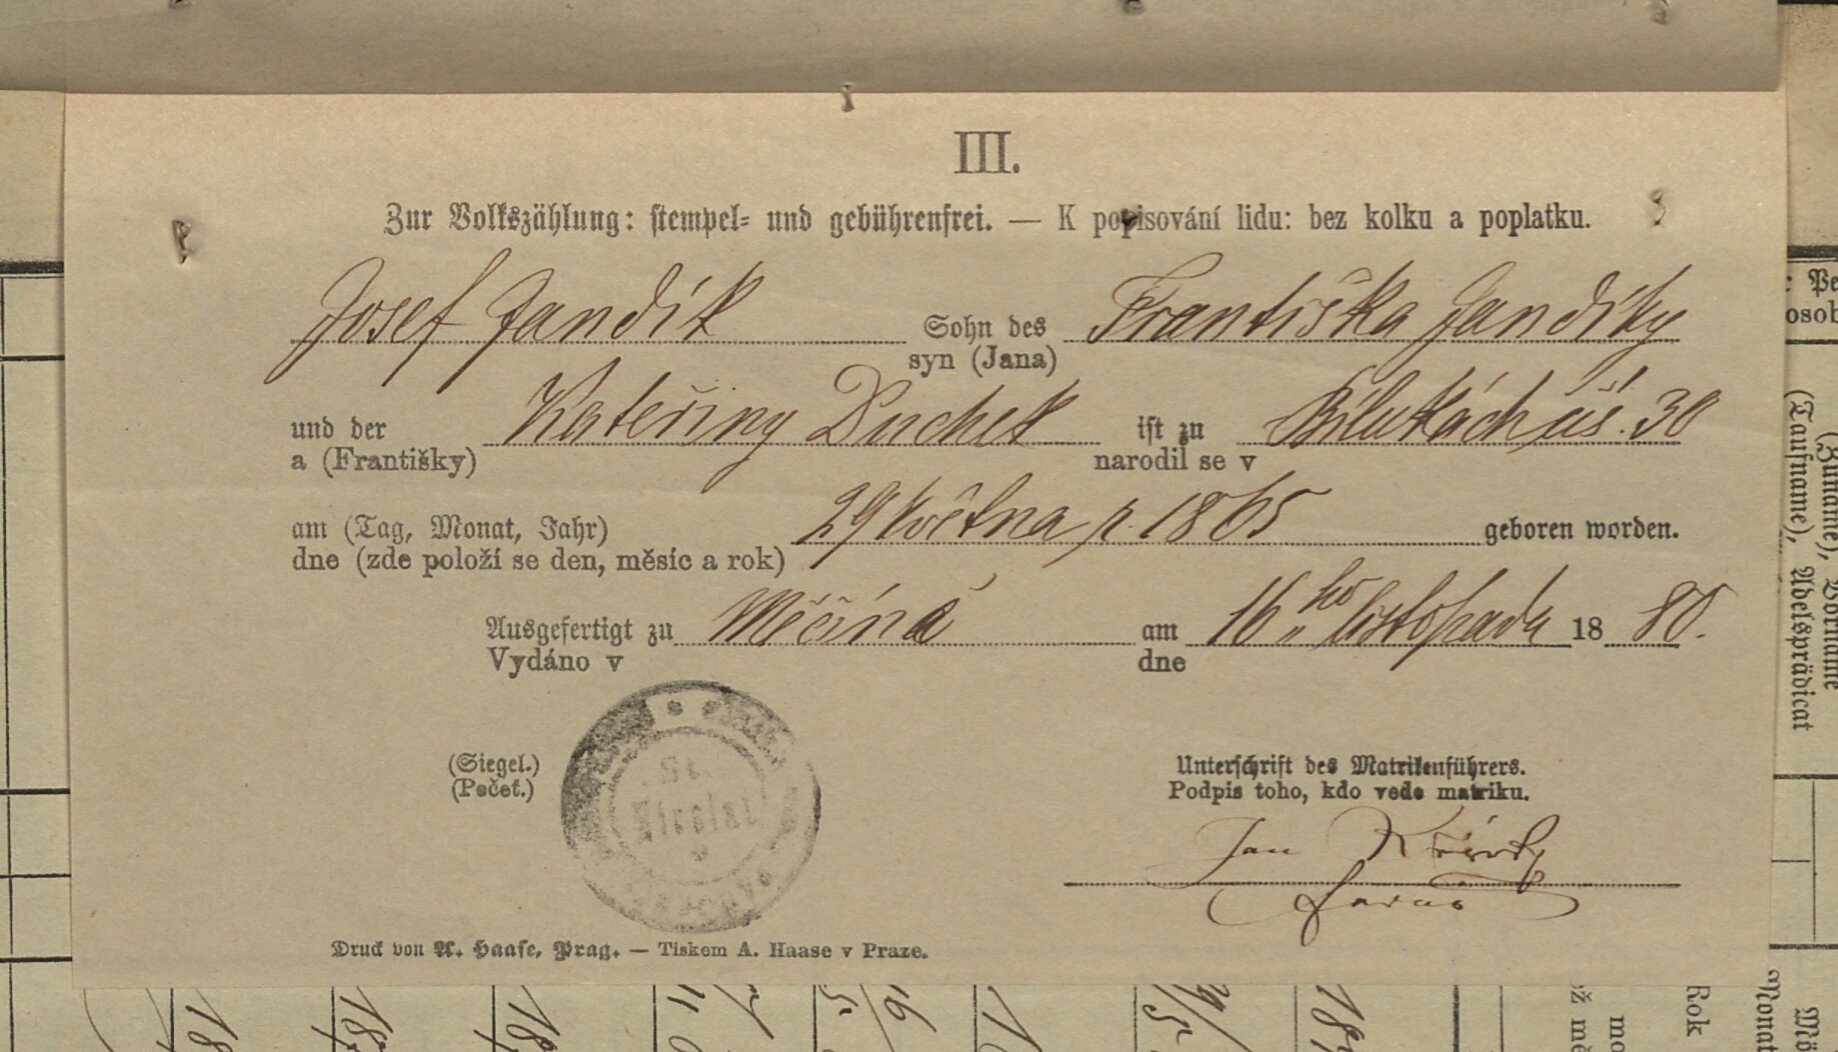 III.
Zur Volkszählung: stempel- und gebührenfrei. — K popisování lidu: bez kolku a poplatku.
Josef Jandík Sohn des Františka Jandíky
syn (Jana)
und der Kateřiny Duchek ist zu 30
a (Františky) narodil se v
am (Tag, Monat, Jahr) 29 Května r. 1865 geboren worden.
dne (zde položí se den, měsíc a rok)
Ausgefertigt zu Měčíně am 16ho listopadu 18 80.
Vydáno v dne
(Siegel.)
(Pečeť.)
St.
Nicolai
Unterschrift des Matrikenführers.
Podpis toho, kdo vede matriku.
Jan
farář
Druck von A. Haase, Prag. — Tiskem A. Haase v Praze.
(Zuname), Vorname
(Taufname), Adelsprädicat
Rok